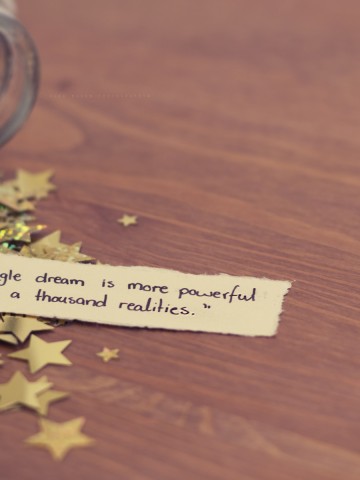 gle dream is more powerful
a thousand realities."